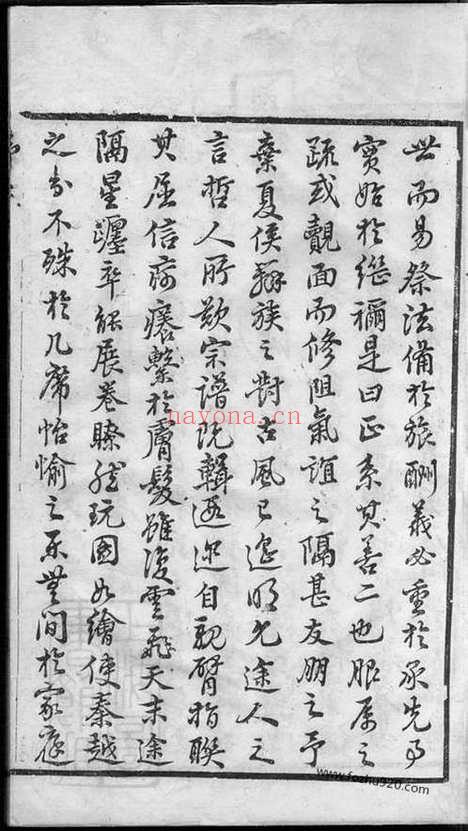 世而易祭法備於旅酬義必重於承先事
實始於繼禰是曰正系其善二也服屬之
疏或覿面而修阻氣誼之隔甚友朋之予
棄夏侯辨族之對古風已遠明允途人之
言哲人所歎宗譜既輯遐邇自親臂指聯
其屈信疴癢繫於膚髮雖復雲飛天末途
隔星躔卒能展卷瞭然玩圖如繪使秦越
之分不殊於几席怡愉之樂無間於家庭
nayona.cn
www.fozhu920.com